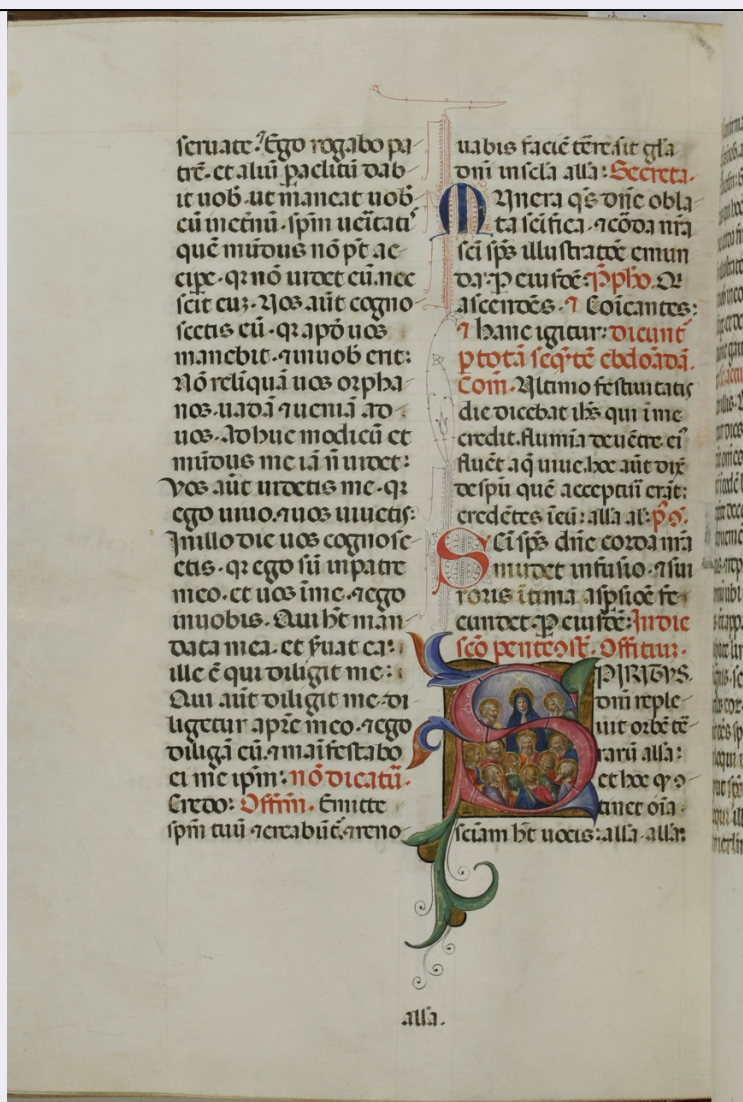 seruate. Ego rogabo pa
trē. et aliū paclitū dab
it uob. ut maneat uob
cū inetnū. spm ueritati
quē mūdus nō pt ac
cipe. qr nō uidet eū. nec
scit euz. Uos aūt cogno
scetis eū. qr apd uos
manebit. ⁊ inuob erit:
Nō relīquā uos orpha
nos. uadā ⁊ ueniā ad
uos. Adhuc modicū et
mūdus me iā n̄ uidet:
Vos aūt uidetis me. qr
ego uiuo. ⁊ uos uiuetis:
In illo die uos cognosc
etis. qr ego sū in patre
meo. et uos ī me. ⁊ ego
in uobis. Qui ht man
data mea. et s̄uat ea:
ille ē qui diligit me:
Qui aūt diligit me. di
ligetur a pr̄e meo. ⁊ ego
diligā eū. ⁊ maīfestabo
ei me ipm: nō dicatū.
Credo: Offm̄. Emitte
spm tuū ⁊ creabūt. ⁊ reno
uabis faciē tēre. sit gl̄a
dn̄i in scl̄a alla: Secreta.
Munera qs dn̄e obla
ta scīfica. ⁊ cōda nr̄a
scī sps illustratōe emun
da: P eiusdē: P̄pho. Q
ascendēs. ⁊ Coīcantes:
⁊ hanc igitur: dicunt
p totā seq̄tē ebdōadā.
Com̄. Ultimo festiuitatis
die dicebat ih̄s qui ī me
credit. flumīa de uētre ei
fluēt aq̄ uiue. hoc aūt dix̄
de spū quē accepturi erāt:
credētes ī eū: alla al: p̄ 9.
Scī sps dn̄e corda nr̄a
mūdet infusio. ⁊ sui
roris ītima aspsiōe fe
cundet. P eiusdē: In die
scō pentecost̄. Offitiuz.
SPIRITVS
dn̄i reple
uit orbē tē
rarū alla:
et hoc q̄ 9
tinet oīa.
sciam ht uocis: alla. alla:
alla.